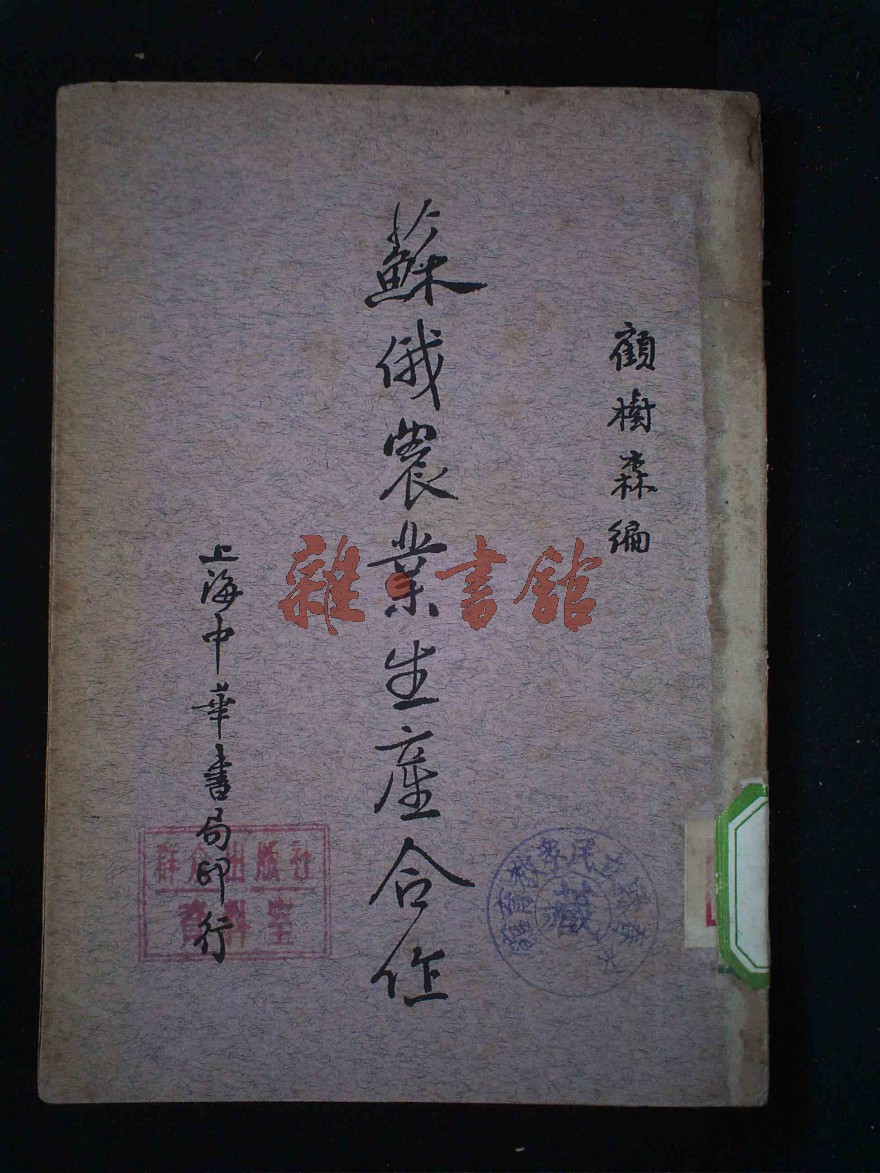 顧樹森編
蘇俄農業生產合作
上海中華書局印行
雜·書館
群众出版社
資料室
藏